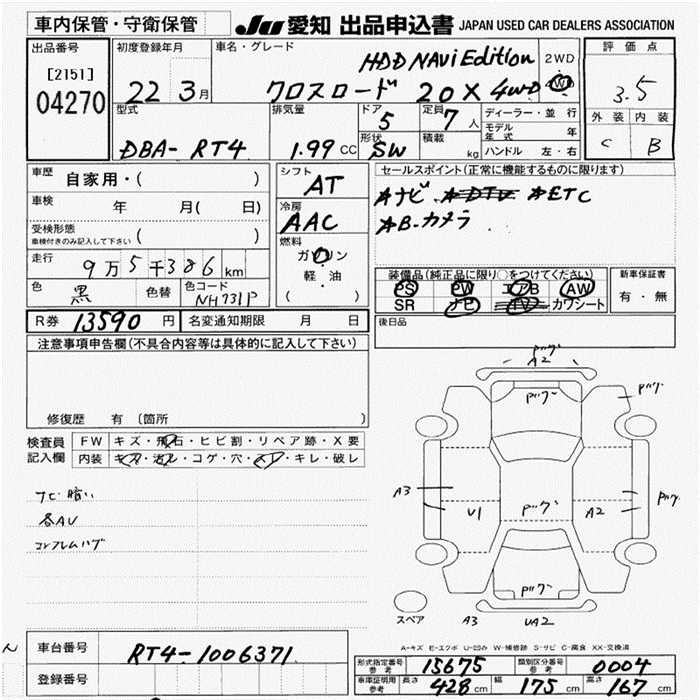 車内保管・守衛保管
JU 愛知 出品申込書 JAPAN USED CAR DEALERS ASSOCIATION
出品番号
[2151]
04270
初度登録年月
22 3月
車名・グレード
HDD NAVi Edition
クロスロード 20X 4WD
2WD
4WD
評価点
3.5
外装 内装
C B
型式
DBA- RT4
排気量
1.99 CC
ドア
5
定員
7 人
形状
SW
積載
kg
ディーラー・並行
モデル年式 年
ハンドル 左・右
車歴
自家用・( )
車検
年 月( 日)
受検形態
車検付きのみ記入して下さい ( )
走行
9万5千386 km
色
黒
色替
色コード
NH731P
シフト
AT
冷房
AAC
燃料
ガソリン
軽・油
( )
セールスポイント(正常に機能するものに限ります)
Aナビ ADTV AETC
AB-カメラ
装備品(純正品に限り○をつけてください)
PS PW エアB AW
SR ナビ TV カワシート
新車保証書
有・無
R券 13590 円
名変通知期限 月 日
後日品
注意事項申告欄(不具合内容等は具体的に記入して下さい)
修復歴 有 〔箇所 〕
検査員
記入欄
FW キズ・飛石・ヒビ割・リペア跡・X要
内装 キズ・汚レ・コゲ・穴・スレ・キレ・破レ
ナビ暗い
各AU
コアフレムハゲ
pック
A2
pック
pック
A3
U1
pック
A2
pック
pック
A3
UA2
スペア
A-キズ E-エクボ U-凹み W-補修跡 S-サビ C-腐食 XX-交換済
車台番号
RT4-1006371
登録番号
形式指定番号
参考
15675
類別区分番号
参考
0004
車庫証明用
参考
長さ 428 cm
幅 175 cm
高さ 167 cm